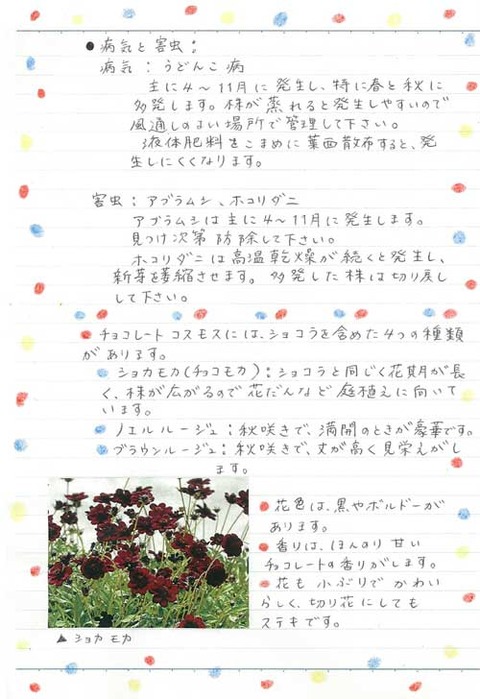 ●病気と害虫：
病気：うどんこ病
主に4〜11月に発生し、特に春と秋に
多発します。株が蒸れると発生しやすいので
風通しのよい場所で管理して下さい。
液体肥料をこまめに葉面散布すると、発
生しにくくなります。
害虫：アブラムシ、ホコリダニ
アブラムシは主に4〜11月に発生します。
見つけ次第防除して下さい。
ホコリダニは高温乾燥が続くと発生し、
新芽を萎縮させます。多発した株は切り戻し
して下さい。
チョコレートコスモスには、ショコラを含めた4つの種類
があります。
ショカモカ(チョコモカ)：ショコラと同じく花期が長
く、株が広がるので花だんなど庭植えに向いて
います。
ノエルルージュ：秋咲きで、満開のときが豪華です。
ブラウンルージュ：秋咲きで、丈が高く見栄えがし
ます。
花色は、黒やボルドーが
あります。
香りは、ほんのり甘い
チョコレートの香りがします。
花も小ぶりでかわい
らしく、切り花にしても
ステキです。
▲ショカモカ